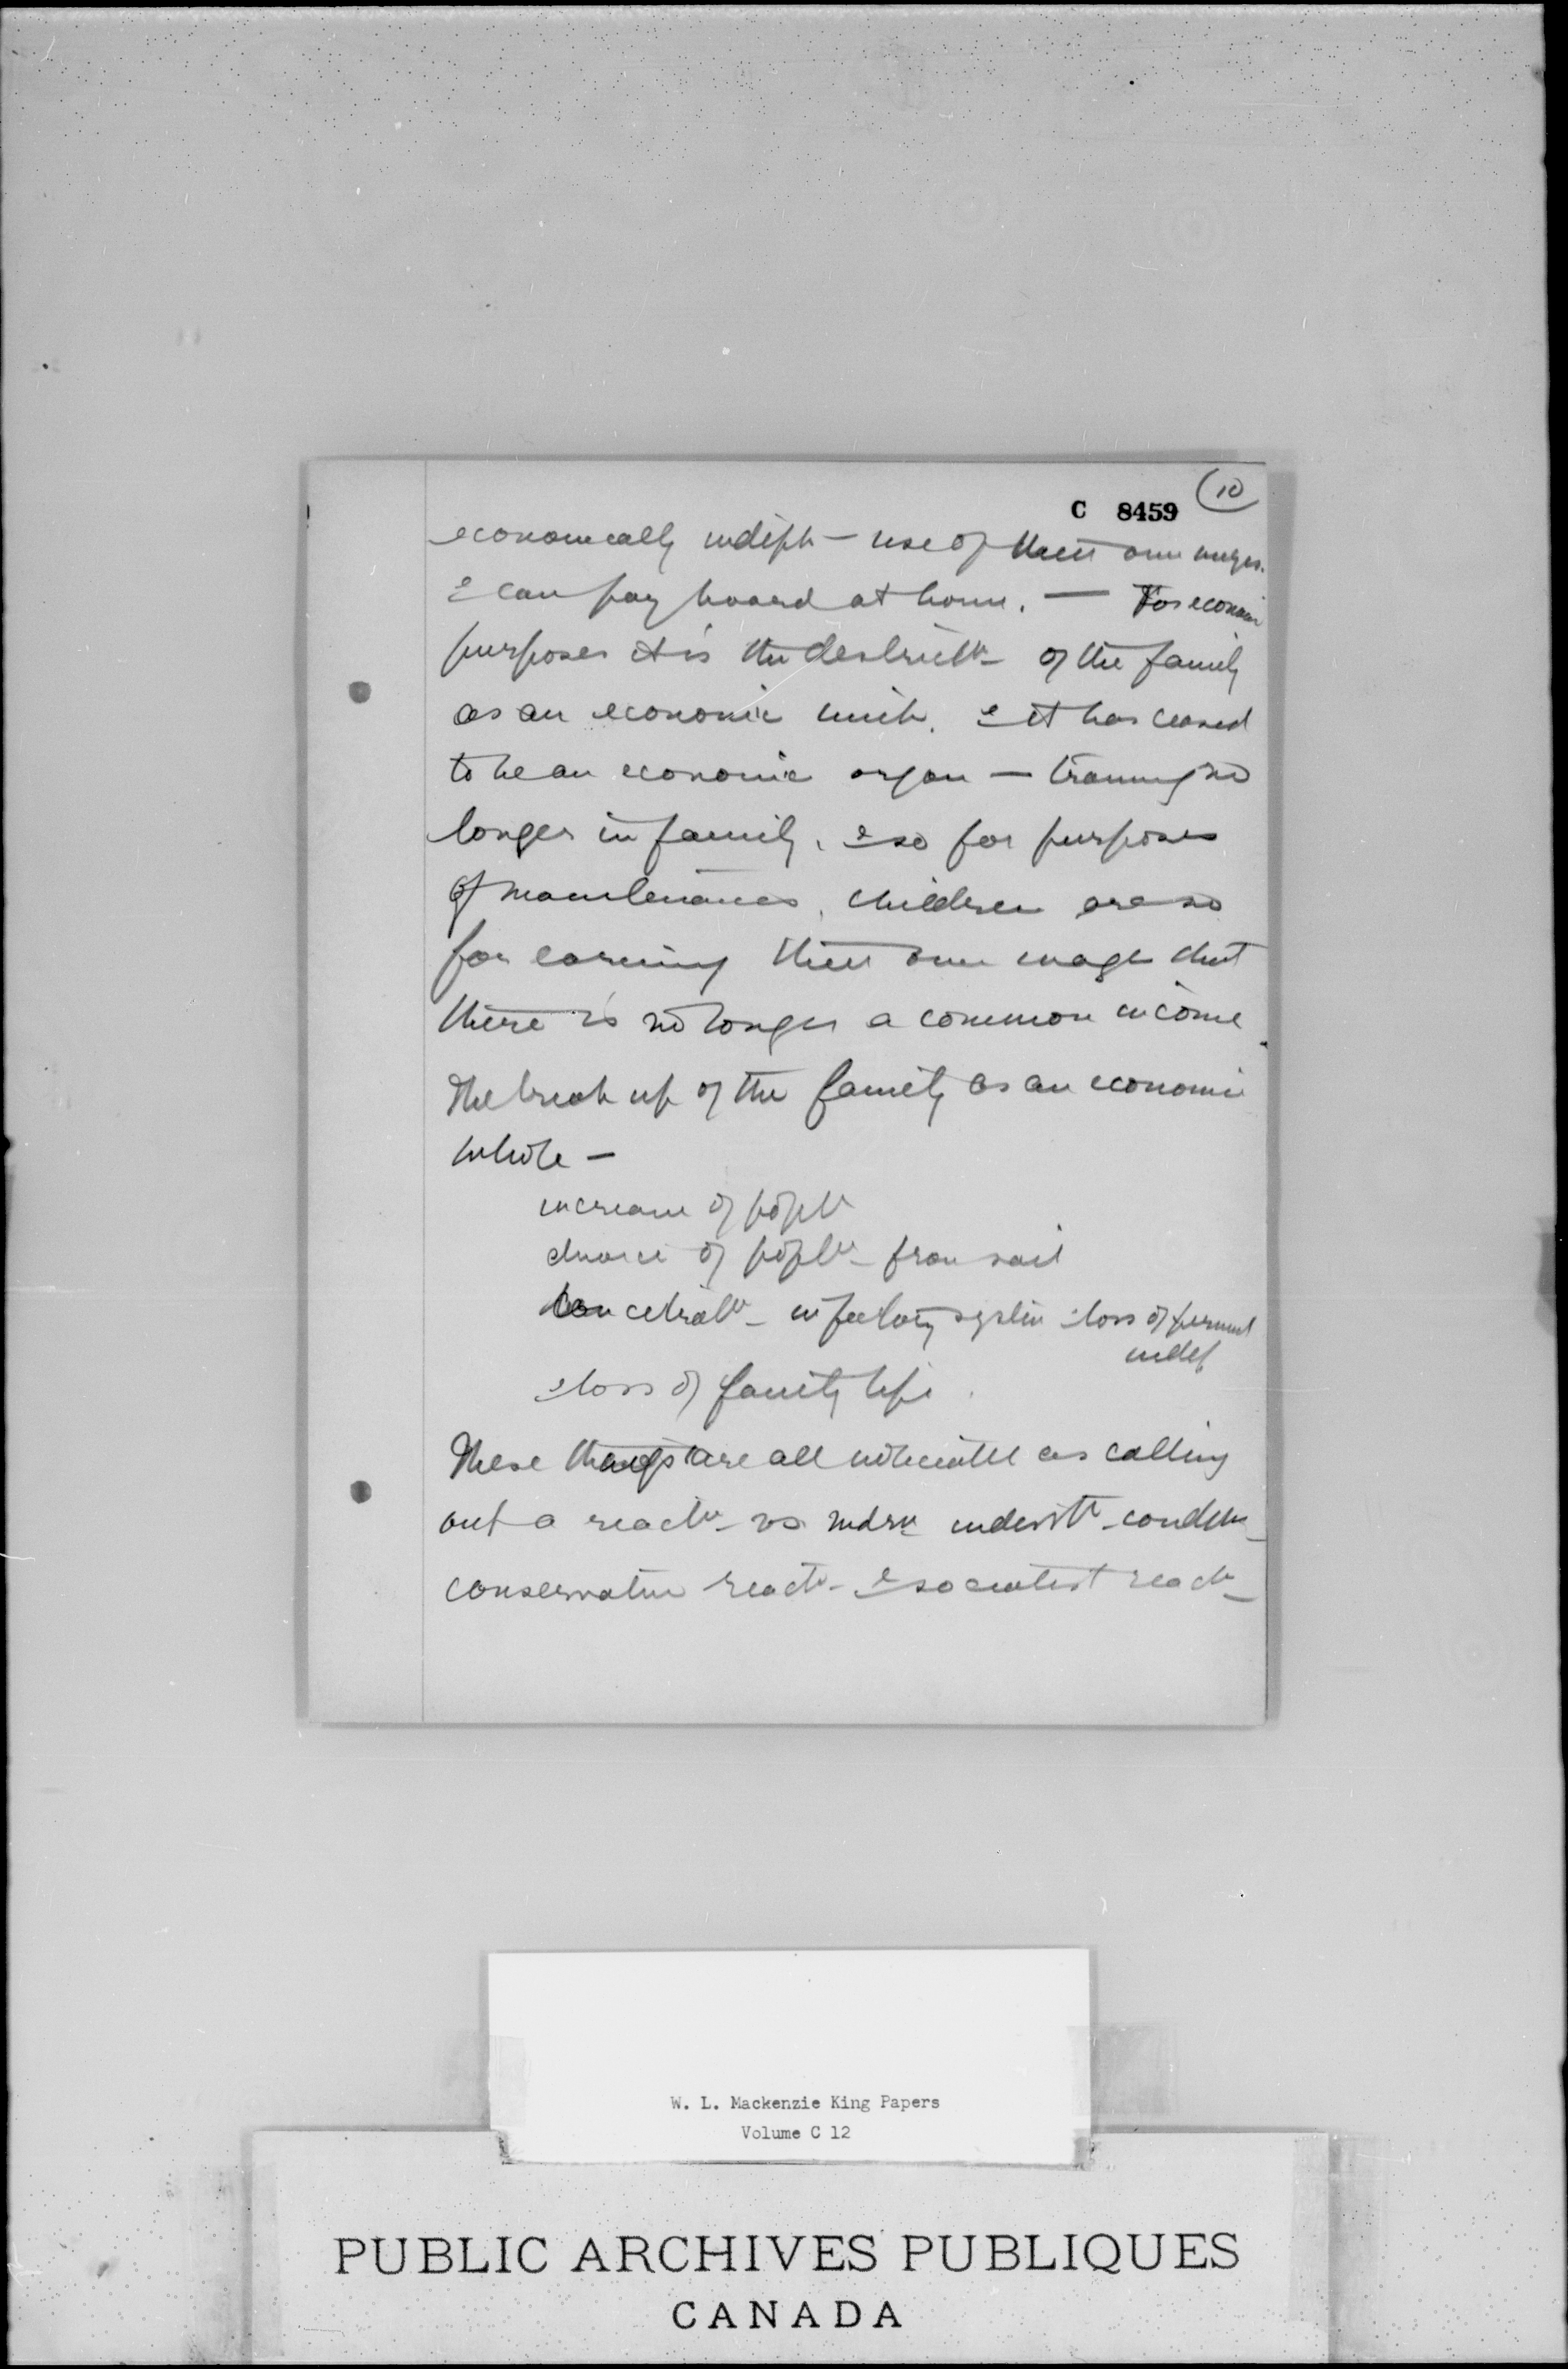 C 8459
10
economically indept - use of their own wages.
& can pay board at home. — For economic
purposes it is the destructn of the family
as an economic unit. & it has ceased
to be an economic organ — training no
longer in family. & so for purposes
of maintenance, children are so
far earning their own wage that
there is no longer a common income
The break up of the family as an economic
whole —
increase of popltn
divorce of popltn from soil
concetratn in factory system & loss of
indep
& loss of family life.
These things are all noticeable as calling
out a reactn vs modrn industl condtns
conservative reactn & socialist reactn
W. L. Mackenzie King Papers
Volume C 12
PUBLIC ARCHIVES PUBLIQUES
CANADA